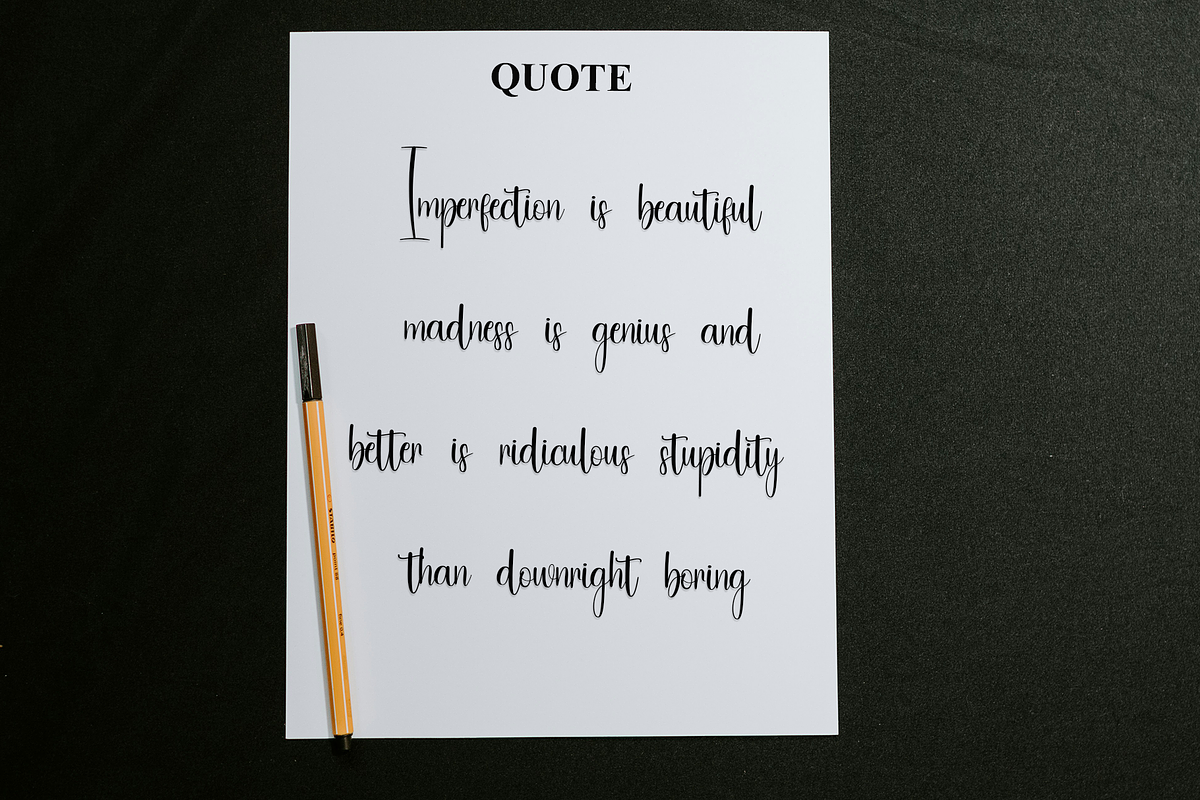 QUOTE
Imperfection is beautiful
madness is genius and
better is ridiculous stupidity
than downright boring
STABILO point 88